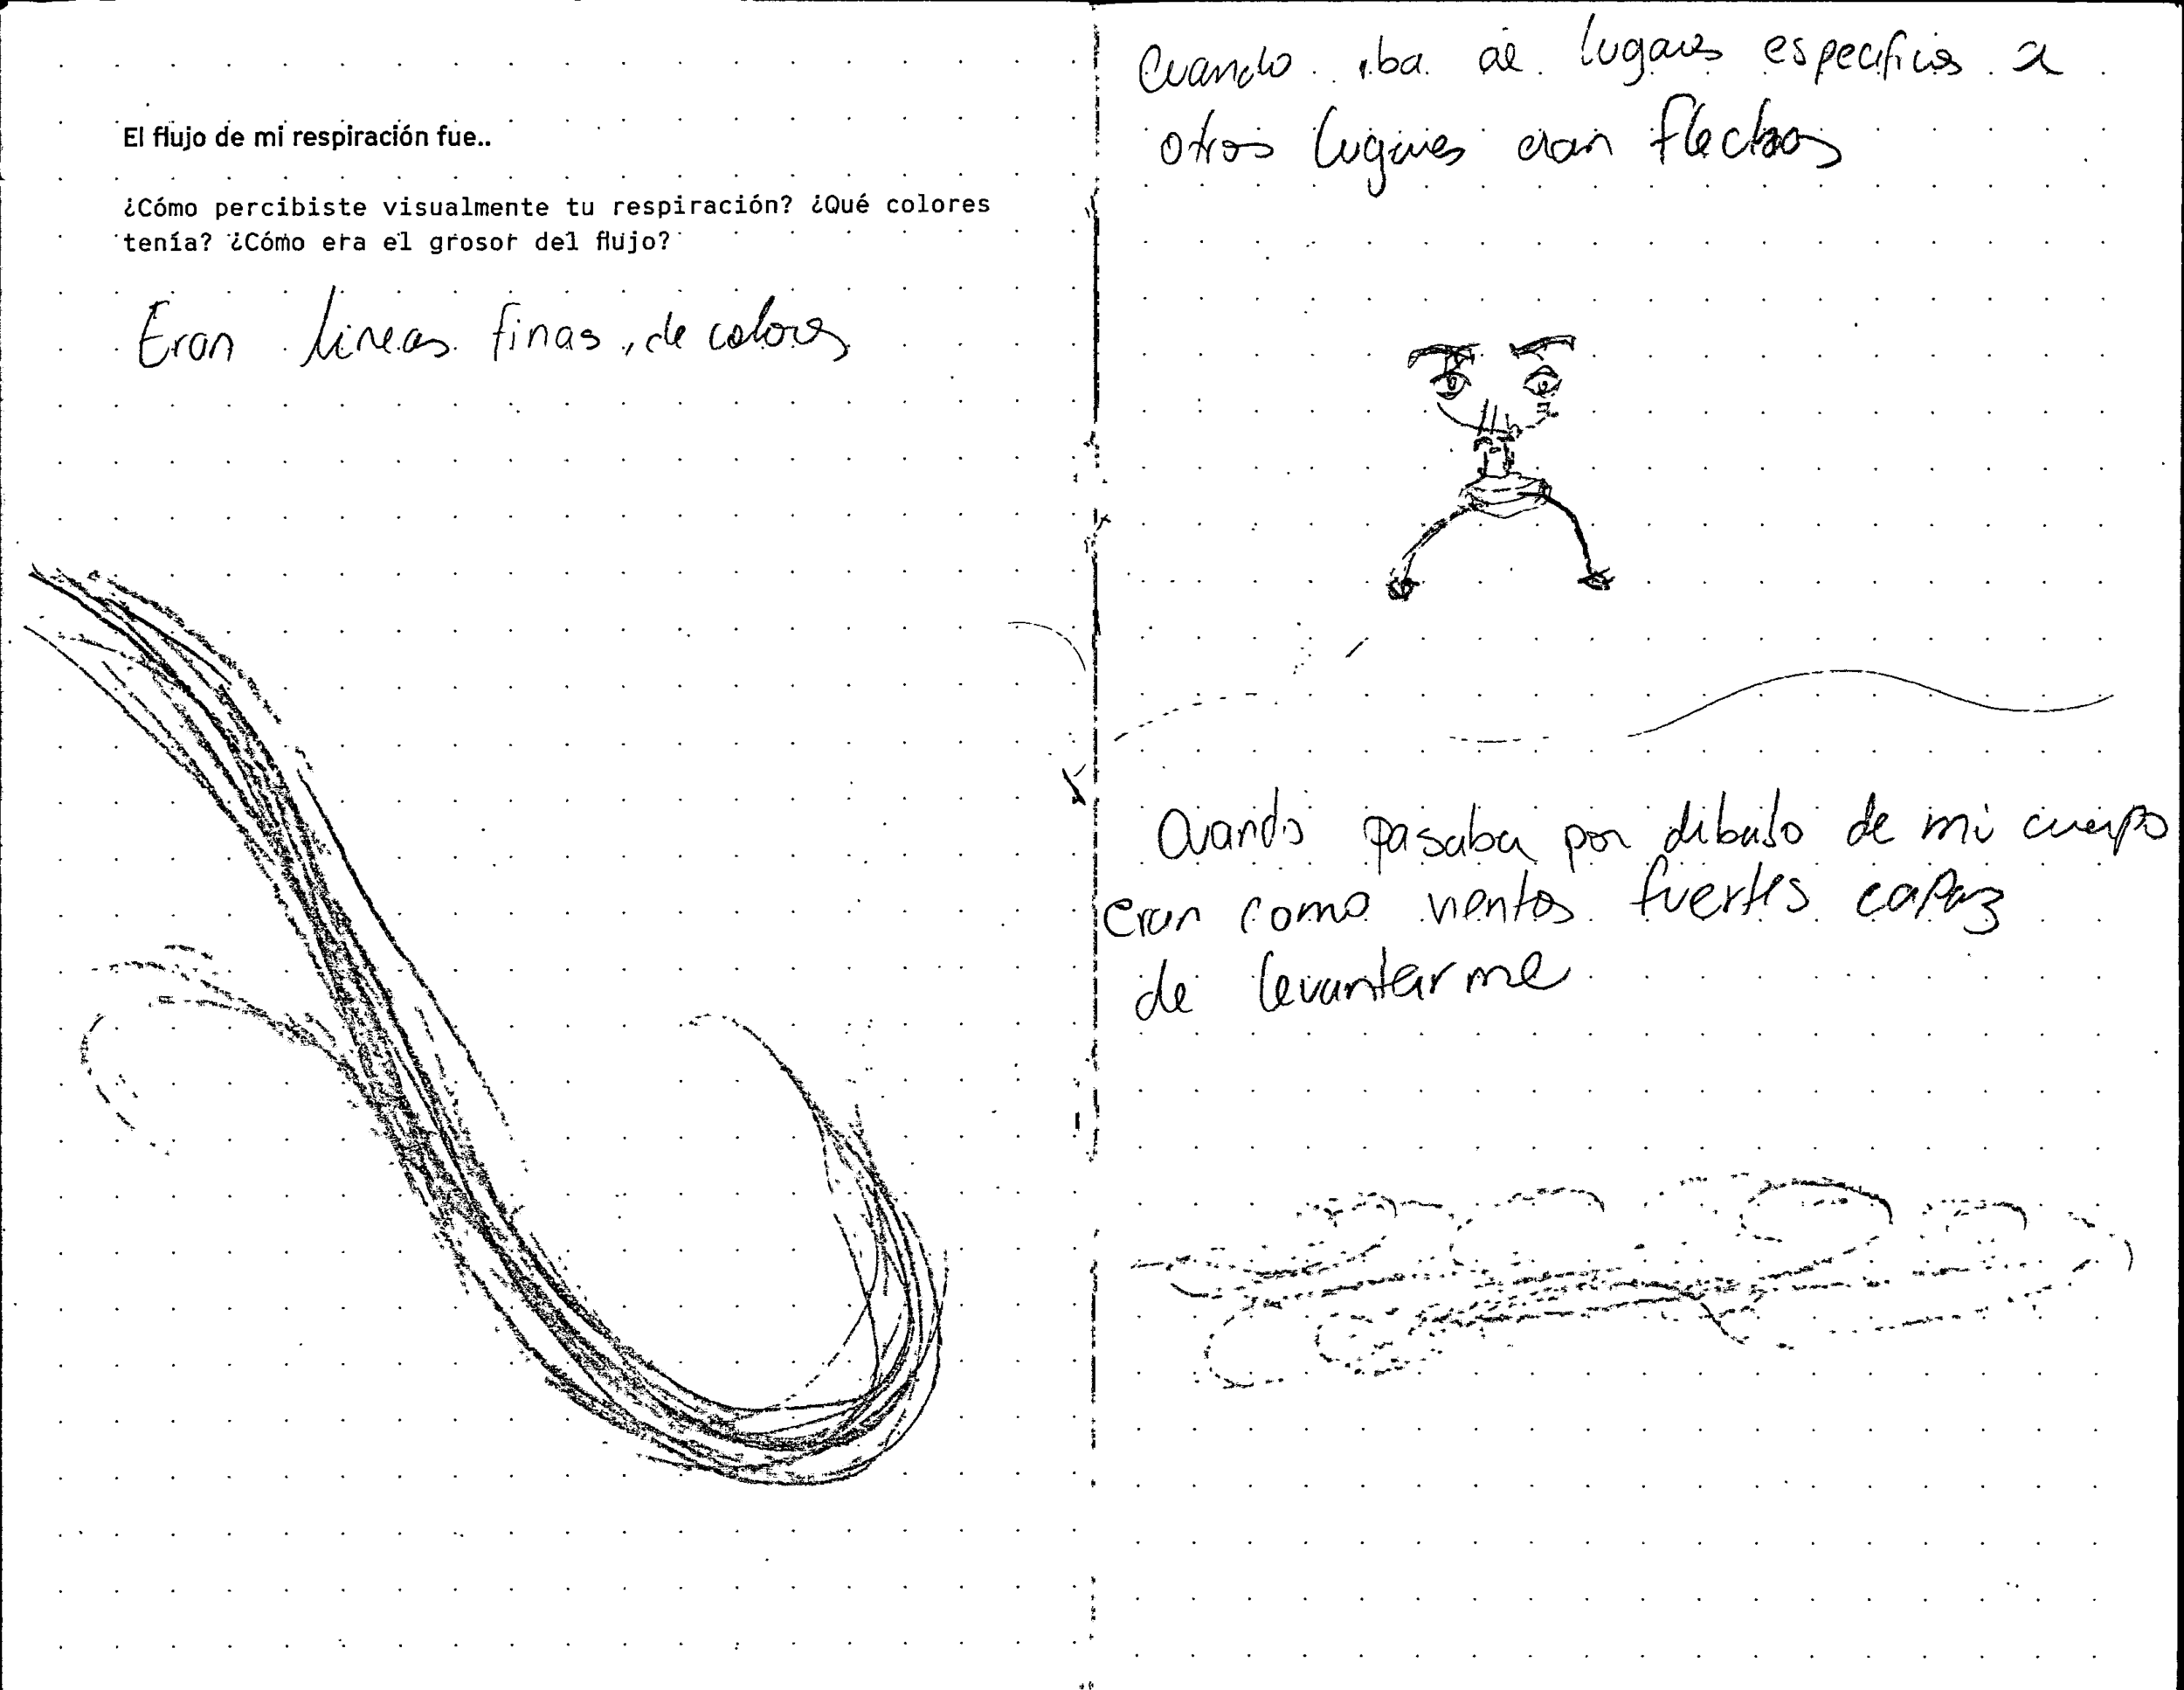 El flujo de mi respiración fue..
¿Cómo percibiste visualmente tu respiración? ¿Qué colores
tenía? ¿Cómo era el grosor del flujo?
Eran lineas finas, de colores
Cuando iba de lugares especificos a
otros lugares eran flechas
Cuando pasaba por debajo de mi cuerpo
eran como vientos fuertes capaz
de levantarme